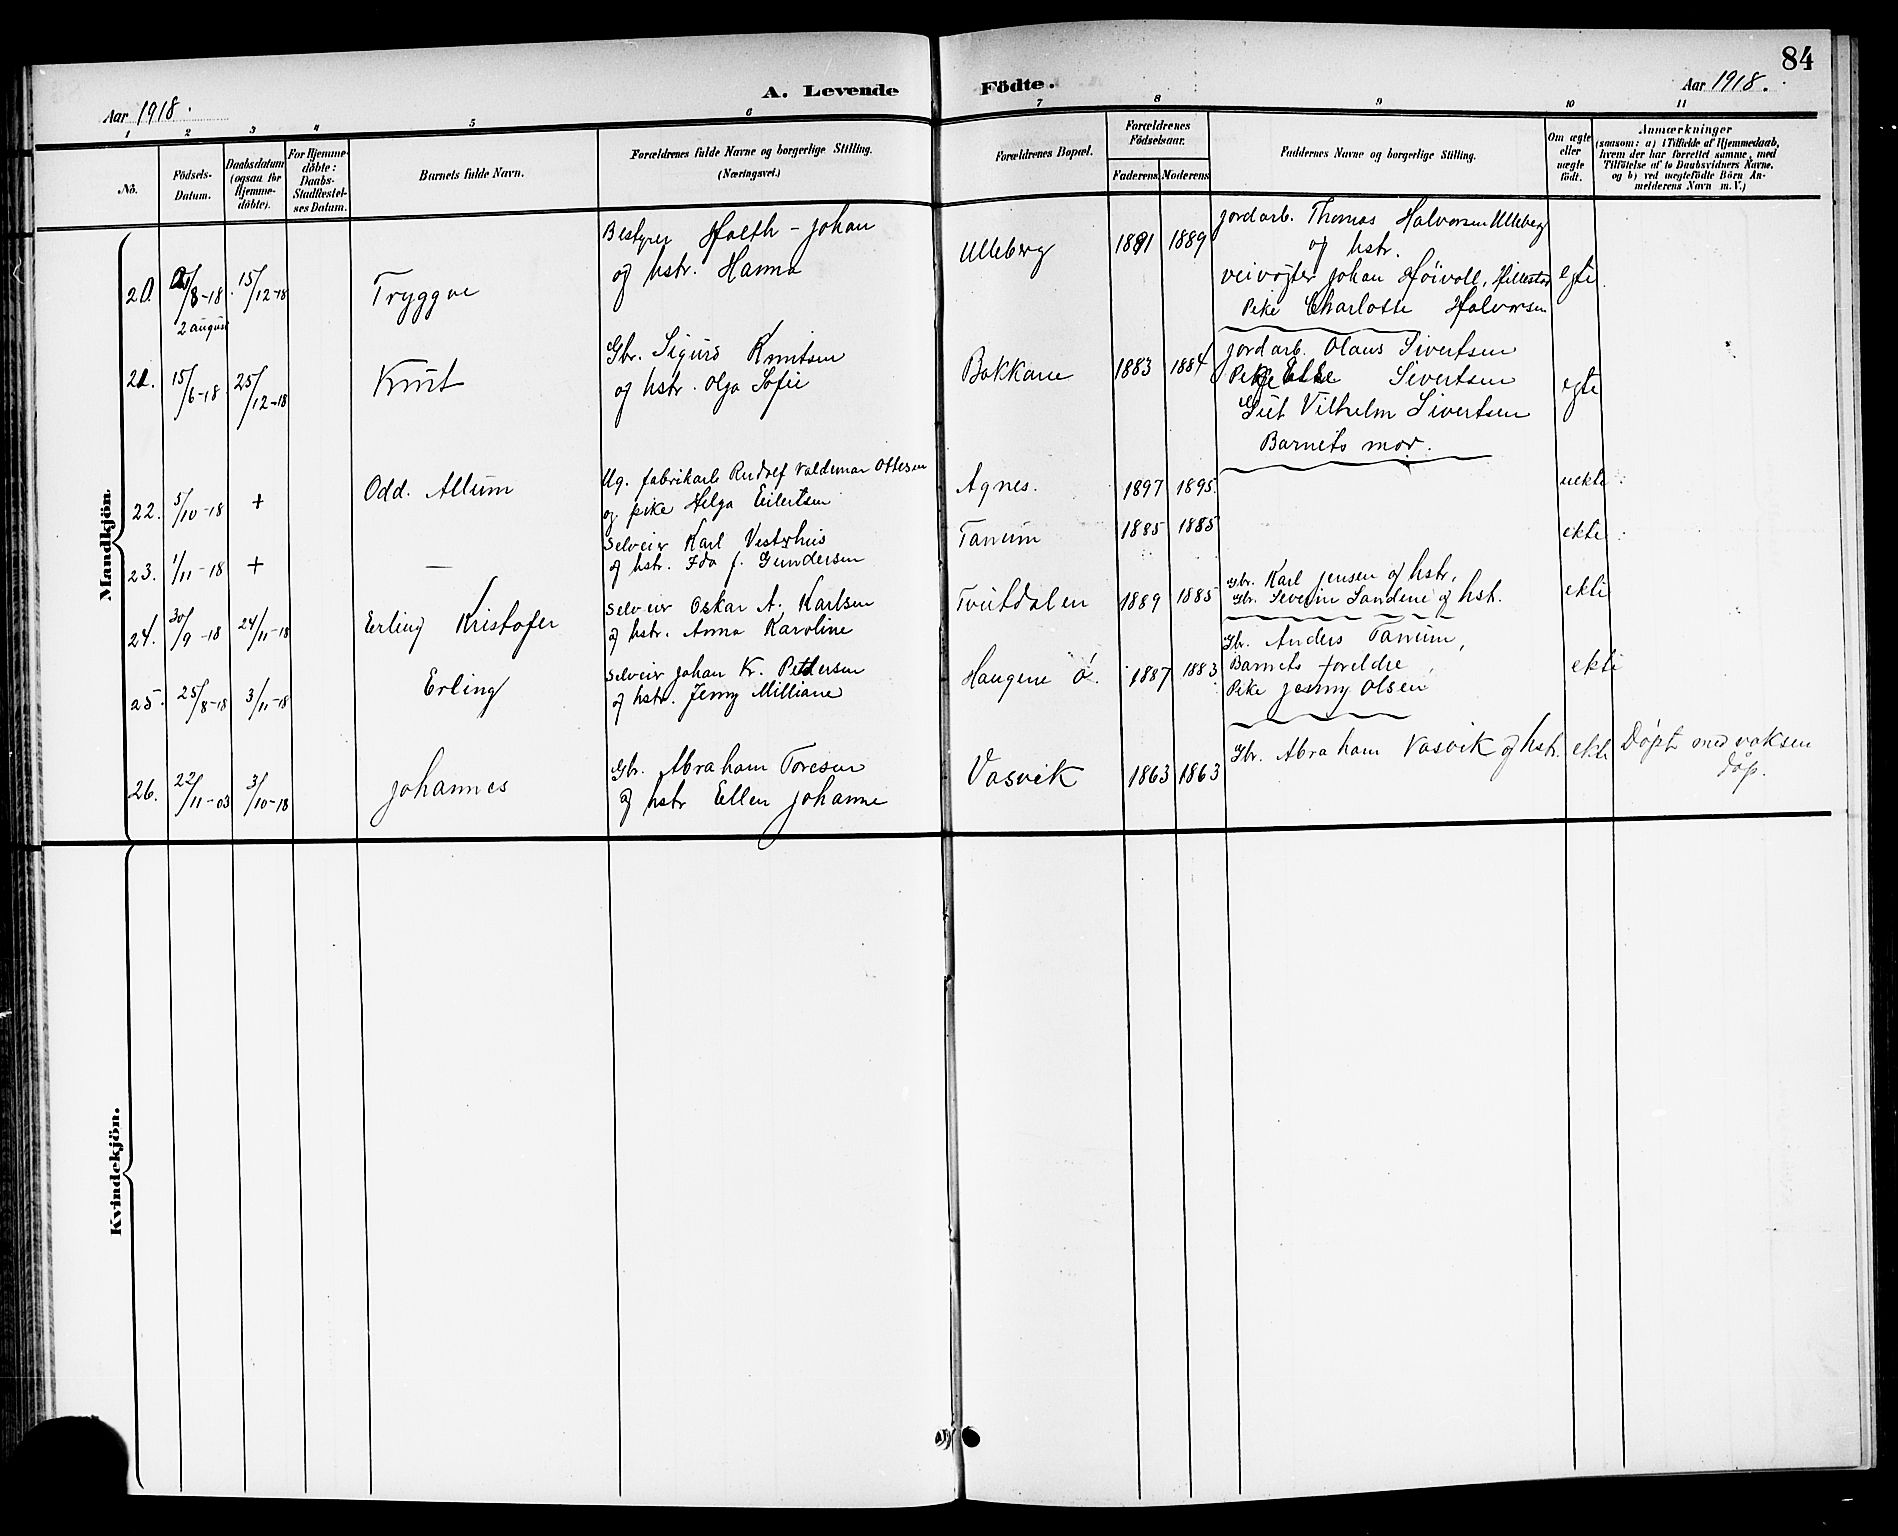 84
Aar 1918.
A. Levende Födte.
Aar 1918.
1 2 3 4 5 6 7 8 9 10 11
No.
Födsels-
Datum.
Daabsdatum
(ogsaa for
Hjemme-
döbte).
For Hjemme-
döbte:
Daabs-
Stadfæstel-
ses Datum.
Barnets fulde Navn.
Forældrenes fulde Navne og borgerlige Stilling.
(Næringsvei.)
Forældrenes Bopæl.
Forældrenes
Födselsaar.
Faderens. Moderens.
Faddernes Navne og borgerlige Stilling.
Om ægte
eller
uægte
født.
Anmærkninger
(saasom: a) i Tilfælde af Hjemmedaab,
hvem der har forrettet samme, med
Tilföielse af to Daabsvidners Navne,
og b) ved uægtefödte Börn An-
melderens Navn m. V.)
Mandkjön.
20. 2/8-18 15/12-18 Tryggve
2 august
Bestyrer Holth - Johan
og hstr. Hanna
Ulleberg 1881 1889
Jordarb. Thomas Halvorsen Ulleberg
og hstr.
veivogter Johan Höivoll,
Pike Charlotte Halvorsen
egte
21. 15/6-18 25/12-18 Knut
Gbr. Sigurd Knutsen
og hstr. Olga Sofie
Bakkane 1883 1884
Jordarb. Olaus Sivertsen
Pike Else Sivertsen
Gut Vilhelm Sivertsen
Barnets mor.
egte
22. 5/10-18 + Odd. Allum
Ug. fabrikarb Rudolf Valdemar Ottesen
og pike Helga Eilertsen
Agnes. 1897 1895 uekte
23. 1/11-18 + —
Selveier Karl Vesterhus
og hstr. Ida f. Gundersen
Tanum 1885 1885 ekte
24. 30/9-18 24/11-18 Erling Kristofer
Selveier Oskar A. Karlsen
og hstr. Anna Karoline
Tvetdalen 1889 1885
Gbr. Karl Jensen og hstr,
Gbr. Severin Sandene og hst.
ekte
25. 25/8-18 3/11-18 Erling
Selveier Johan Kr. Pettersen
og hstr. Jenny Milliane
Haugene ö. 1887 1883
Gbr. Anders Tanum,
Barnets foreldre,
Pike Jenny Olsen
ekte
26. 22/11-03 3/10-18 Johannes
Gbr. Abraham Toresen
og hstr Ellen Johanne
Vasvik 1863 1863
Gbr. Abraham Vasvik og hstr. ekte
Döpt med voksen
döp.
Kvindekjön.